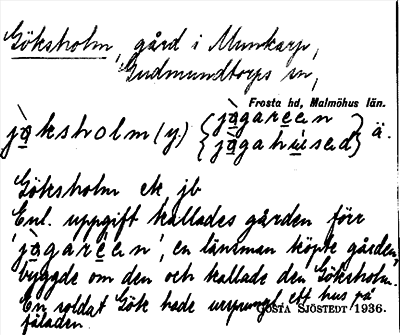 Göksholm, gård i Munkarp,
Gudmundtorps sn,
Frosta hd, Malmöhus län.
jạ̀ksholm (y.) { jạ̀gareen
jạ̀gahused } ä.
Göksholm ek. jb
Enl. uppgift kallades gården förr
'jạ̀gareen', en länsman köpte gården,
byggde om den och kallade den Göksholm.
En soldat Gök hade urspungl. ett hus på
fäladen.
GÖSTA SJÖSTEDT 1936.